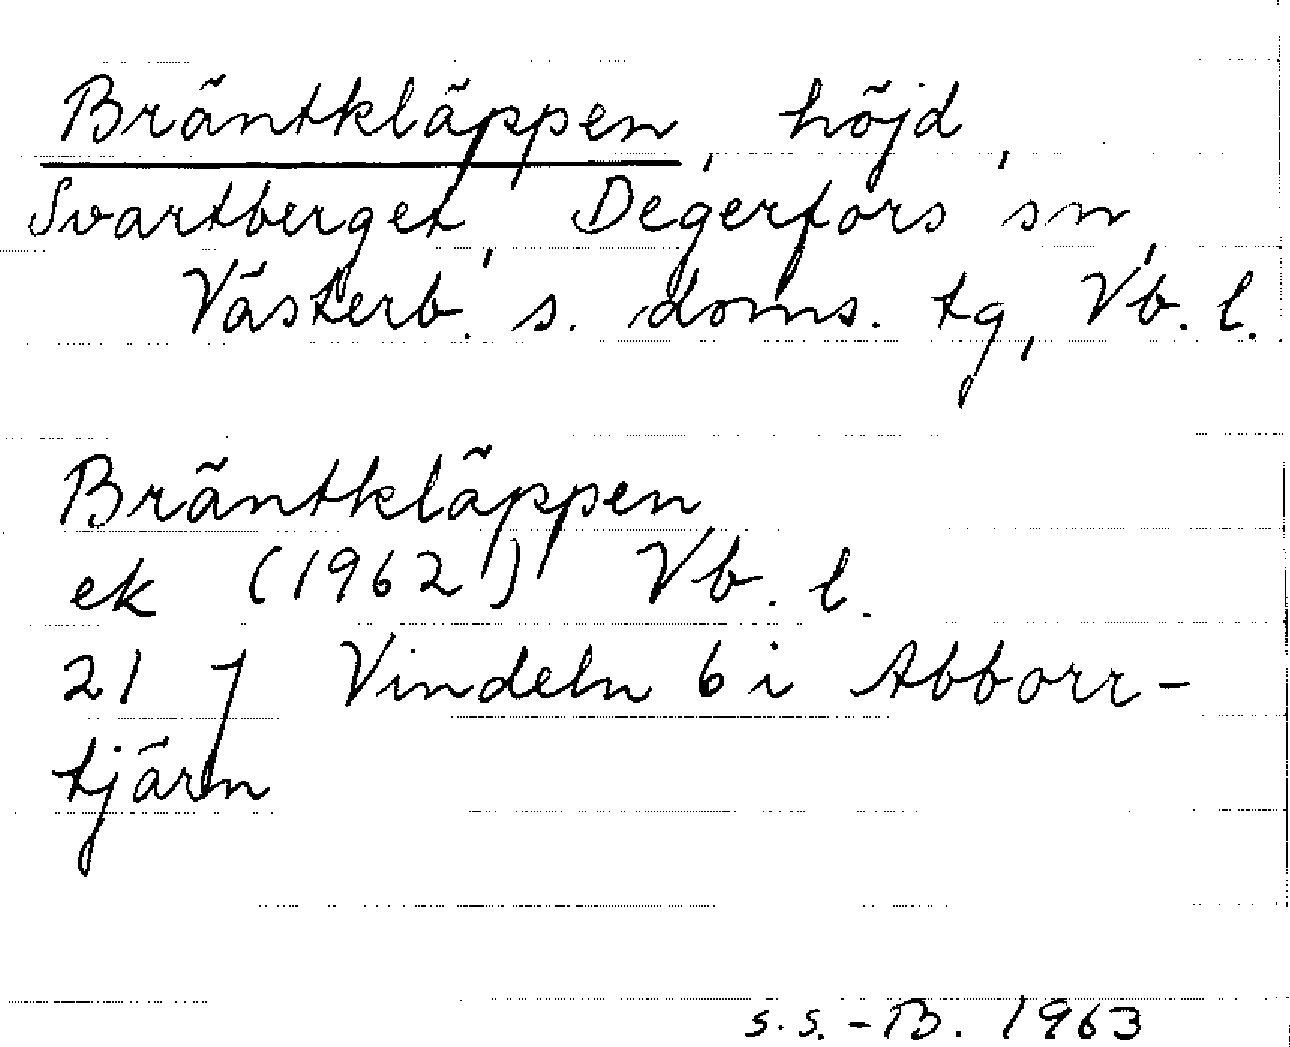 Bräntkläppen, höjd,
Svartberget, Degerfors sn,
Västerb. s. doms. tg, Vb. l.
Bräntkläppen
ek (1962) Vb. l.
21 J Vindeln 6 i Abborr-
tjärn
s.s.-B. 1963